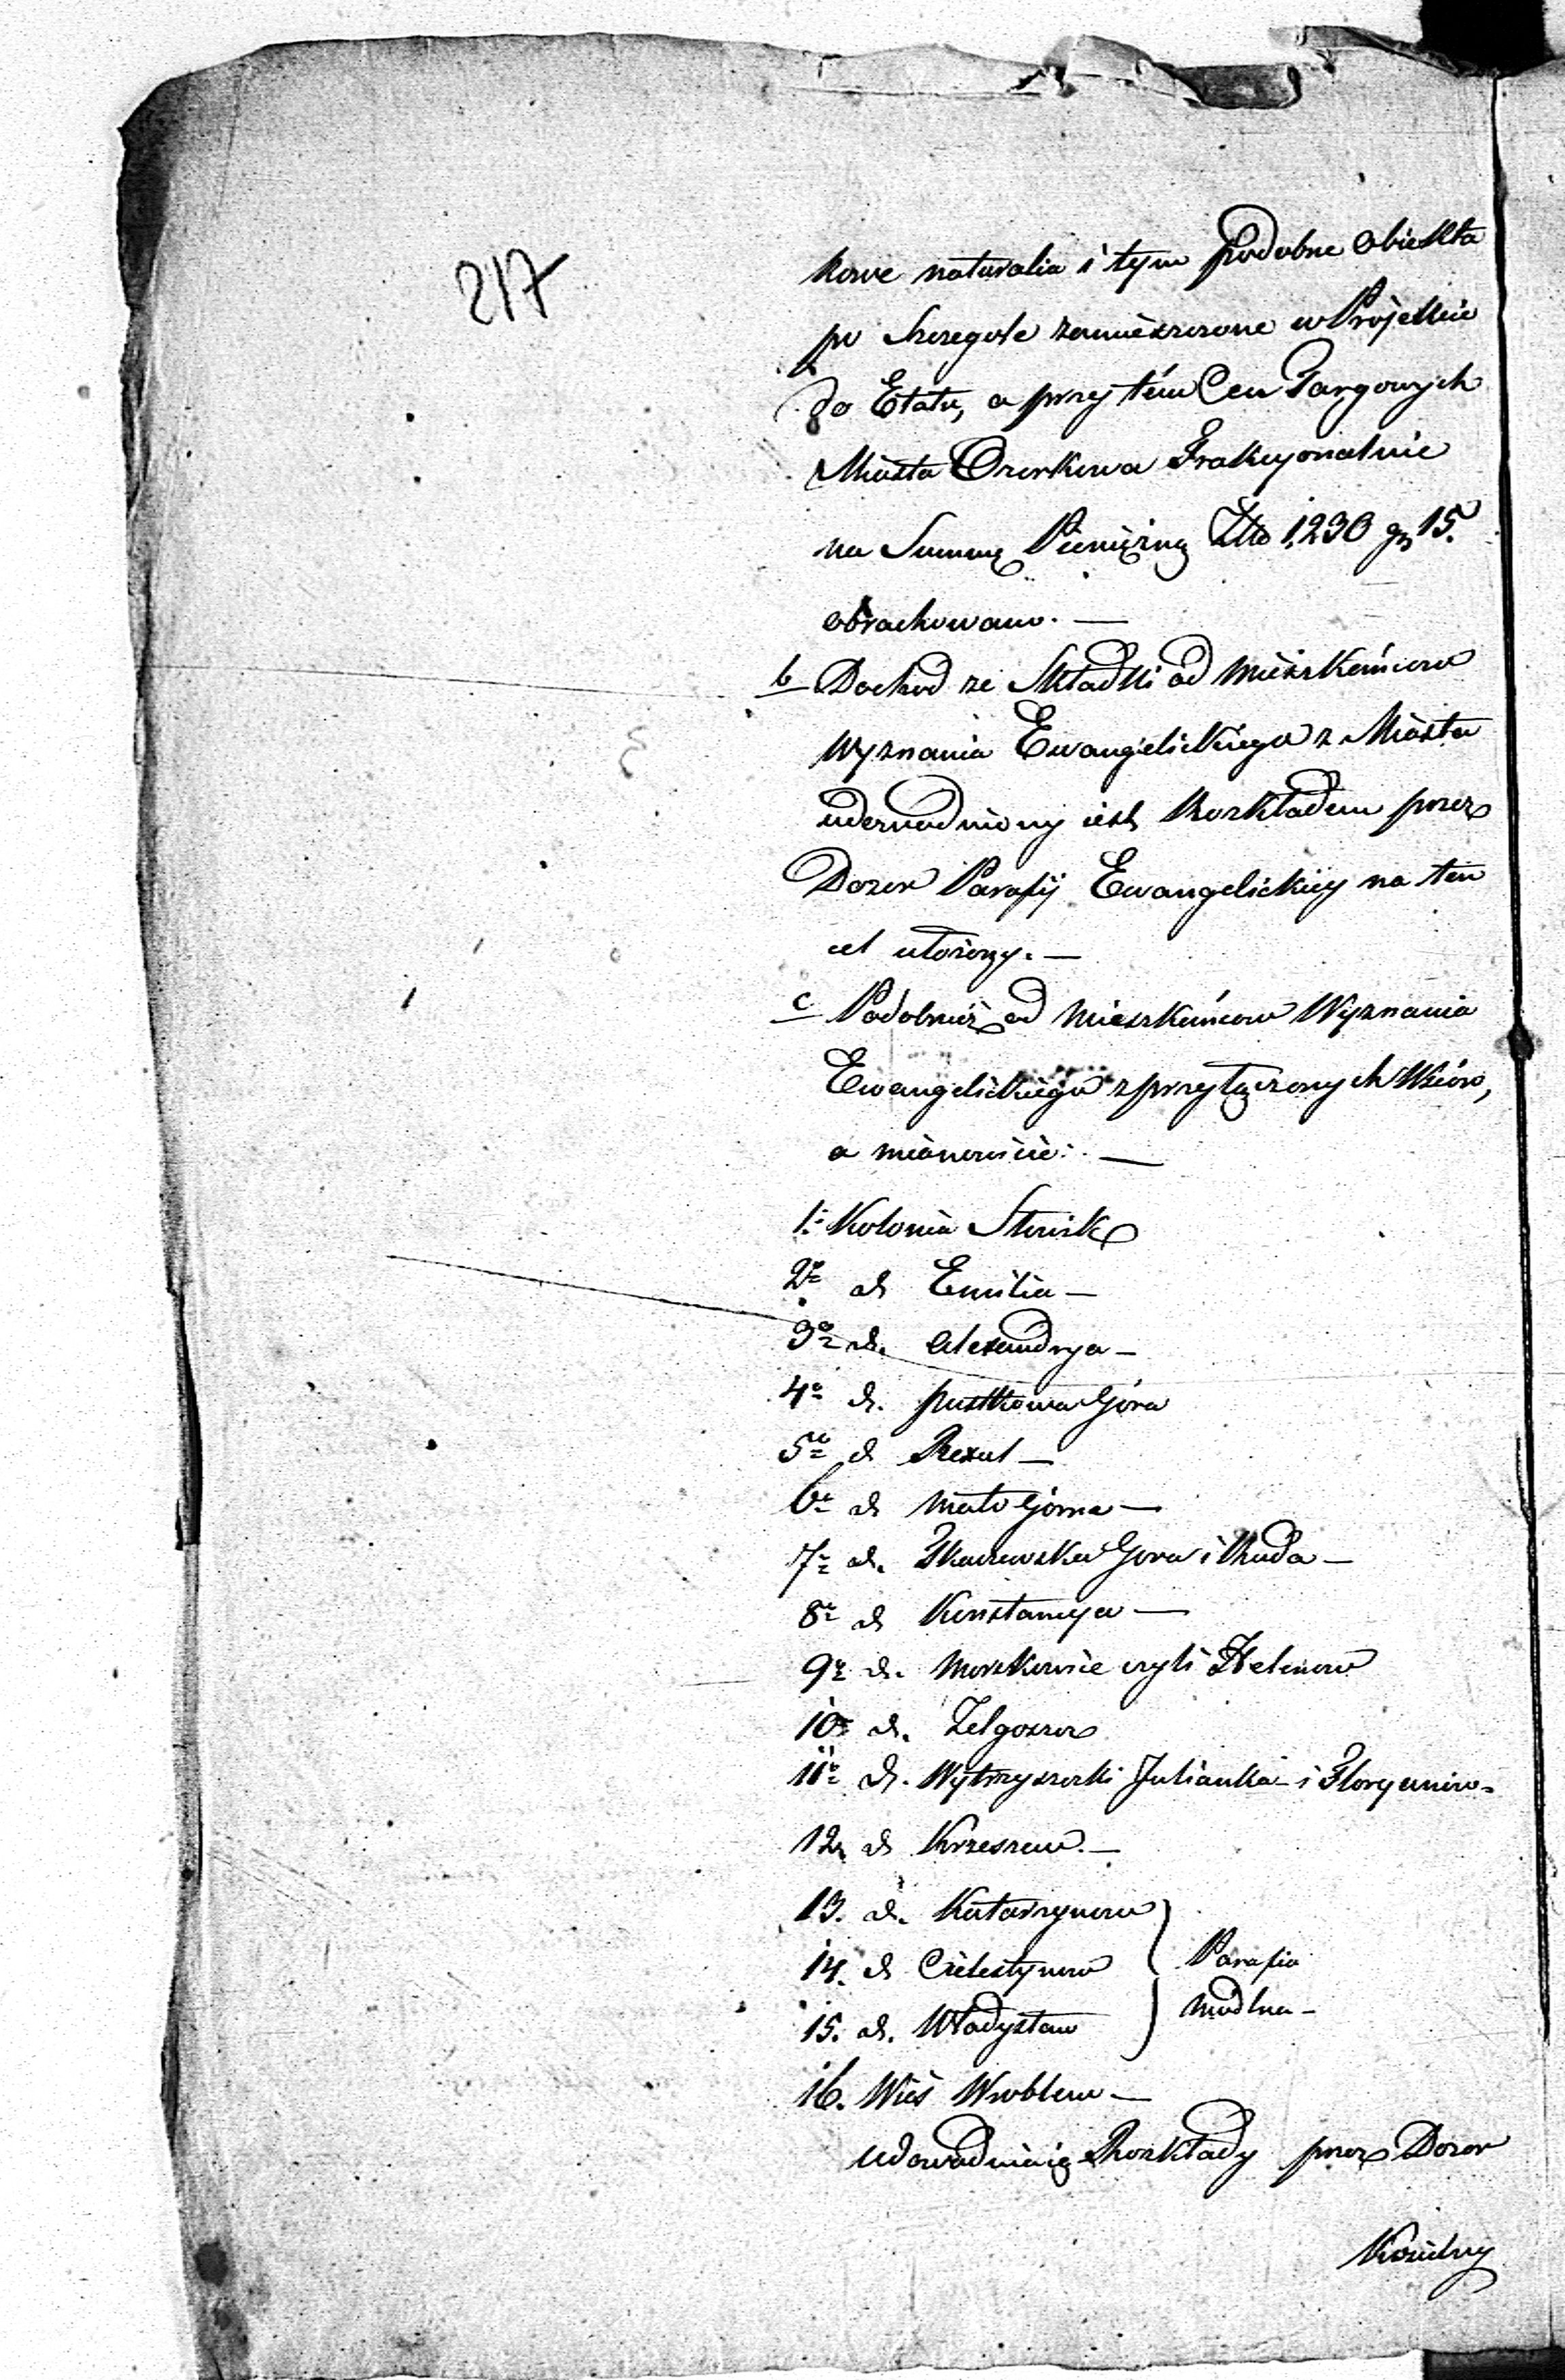 217
kowe naturalia i tym podobne Obiekta
po szczegole zamieszczone w Projekcie
do Etatu, a przy tém Cen Targowych
Miasta Ozorkowa Frakcyonalnie
na Summę Pieniężną Złto 1,230 gr 15.
obrachowano. —
b Dochod ze Składki od Mieszkańcow
Wyznania Ewangelickiego z Miasta
udowodniony iest Rozkładem przez
Dozor Parafij Ewangelickiey na ten
cel ułożony. —
c Podobnież od Mieszkańcow Wyznania
Ewangelickiego z przyłączonych Wsiów,
a mianowicie: —
1. Kolonia Słowik
2o d Emilia —
3o d. Alexandrya —
4o d. pustkowa Góra
5o d —
6o d Mało Górna —
7o d. Gora i Ruda —
8o d Konstancya —
9o d. Morzkowice czyli Helenow
10o d. Zelgoszcz
11o d. Julianka i Floryanow —
12. d Krzeszew. —
13. d. Katarzynow
14. d Celestynow Parafia
15. d. Władysław Modlna —
16. Wieś Wroblew —
udowadniaią Rozkłady przez Dozor
Kościelny